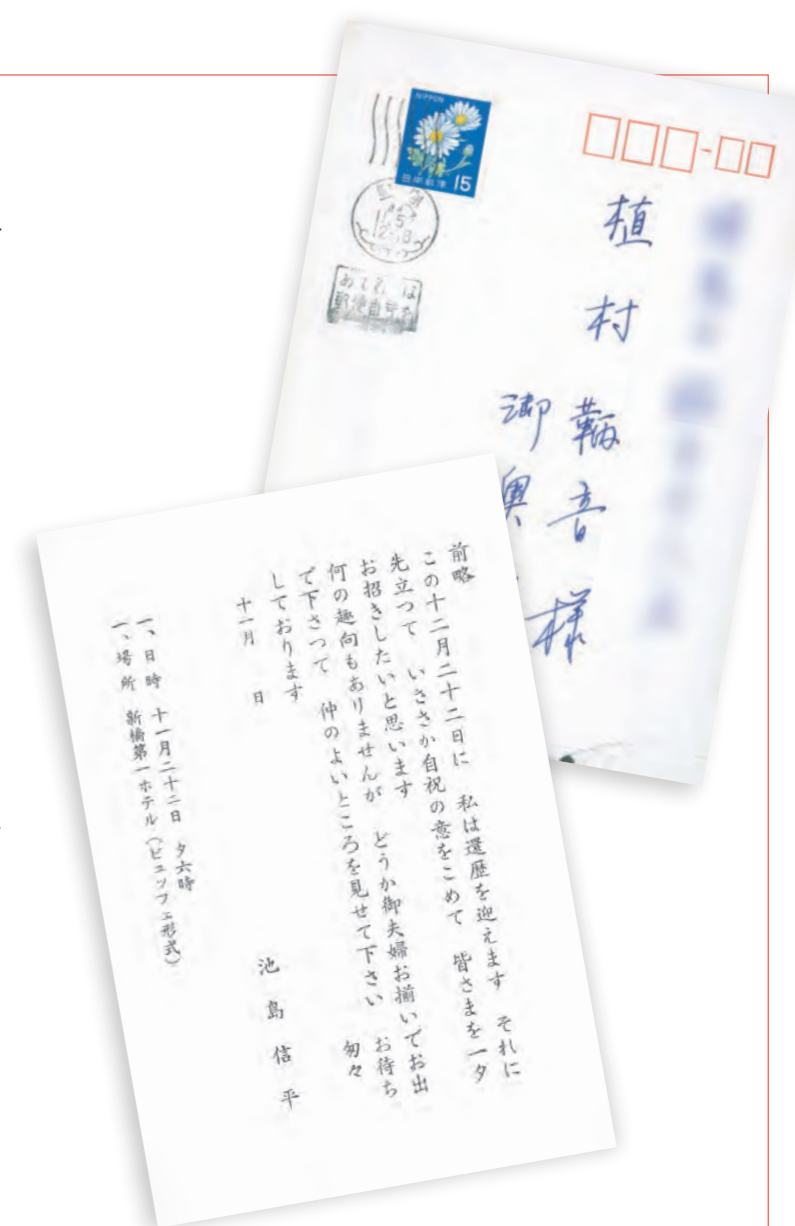 NIPPON
日本郵便 15
あて名は
郵便番号を
植村鞆音様
御奥様
前略
この十二月二十二日に 私は還歴を迎えます それに
先立つて いささか自祝の意をこめて 皆さまを一夕
お招きしたいと思います
何の趣向もありませんが どうか御夫婦お揃いでお出
で下さつて 仲のよいところを見せて下さい お待ち
しております 匆々
十一月 日
池島信平
一、日時 十一月二十二日 夕六時
一、場所 新橋第一ホテル(ビュッフェ形式)